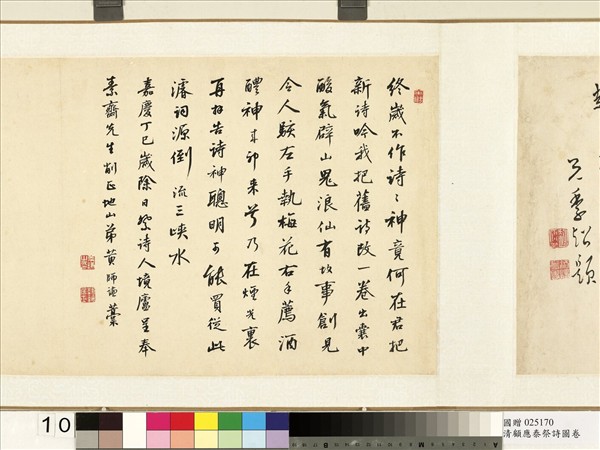 終歲不作詩〻神竟何在君把
新詩吟我把舊詩改一卷出囊中
酸氣辟山鬼浪仙有故事創見
令人駭左手執梅花右手薦酒
醴神其卽来兮乃在煙光裏
再拜告詩神聰明可能買從此
濬詞源倒流三峽水
嘉慶丁巳歲除日祭詩人境廬呈奉
素齋先生削正地山弟黃師 藁
題
10
國贈 025170
清顧應泰祭詩圖卷